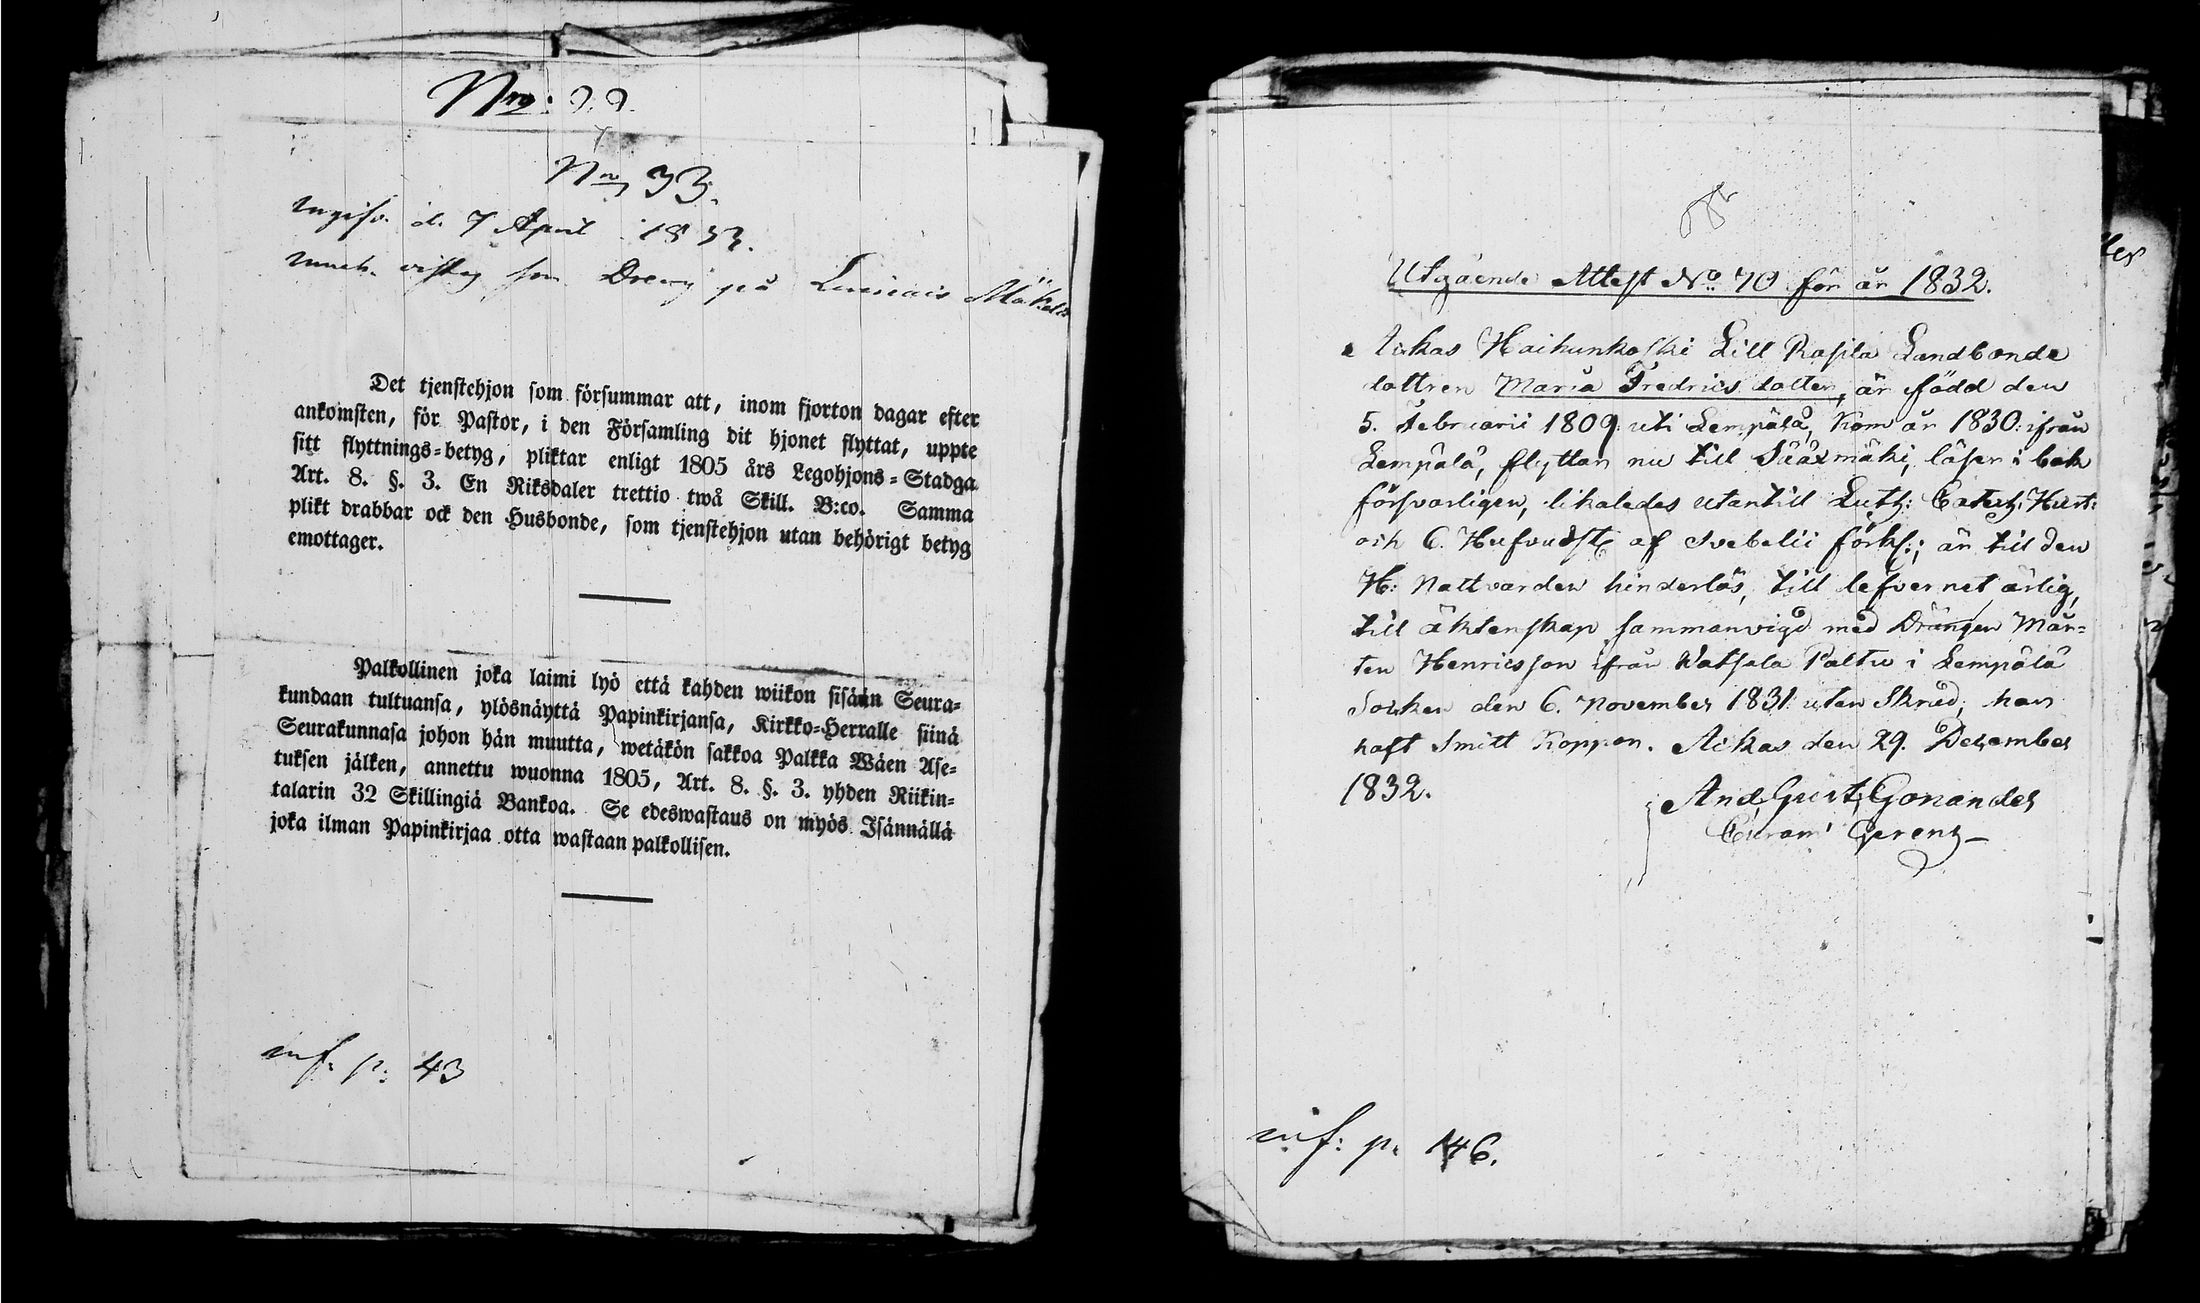 Nro: 33.
Nro 33.
ingifv. d. 7 April 1833.
som Dreng på Mäkelä
Det tjenstehjon som försummar att, inom fjorton dagar efter
ankomsten, för Pastor, i den Församling dit hjonet flyttat, uppte
sitt flyttnings-betyg, pliktar enligt 1805 års Legohjons-Stadga
Art. 8. §. 3. En Riksdaler trettio twå Skill. B:co. Samma
plikt drabbar ock den Husbonde, som tjenstehjon utan behörigt betyg
emottager.
Palkollinen joka laimi lyö että kahden wiikon sisään Seura-
kundaan tultuansa, ylösnäyttä Papinkirjansa, Kirkko-Herralle siinä
Seurakunnasa johon hän muutta, wetäkön sakkoa Palkka Wäen Ase-
tuksen jälken, annettu wuonna 1805, Art. 8. §. 3. yhden Riikin-
talarin 32 Skillingiä Bankoa. Se edeswastaus on myös Isännällä
joka ilman Papinkirjaa otta wastaan palkollisen.
inf. p: 43
Utgående Attest No. 70 för år 1832.
Ackas Haihunkoski Lill Rasila Landbonde
dottren Maria Fredrics dotter, är född den
5. Februarii 1809. uti Lempälä, Kom år 1830. ifrån
Lempälä, flyttar nu till Sääxmäki, läser i bok
försvarligen, likaledes utantill Luth: Catech: Hust:
och C. Hufvudst. af Svebelii förkl:; är till den
H: Nattvarden hinderlös, till lefvernet ärlig,
till äktenskap sammanvigd med Drängen Mår-
ten Henricsson ifrån Watsala Paltu i Lempälä
Socken den 6. November 1831 utan Skrud; har
haft Smitt Koppor. Ackas den 29. December
1832.
And. Gust. Gonander
Curam Gerens
inf: p. 146.